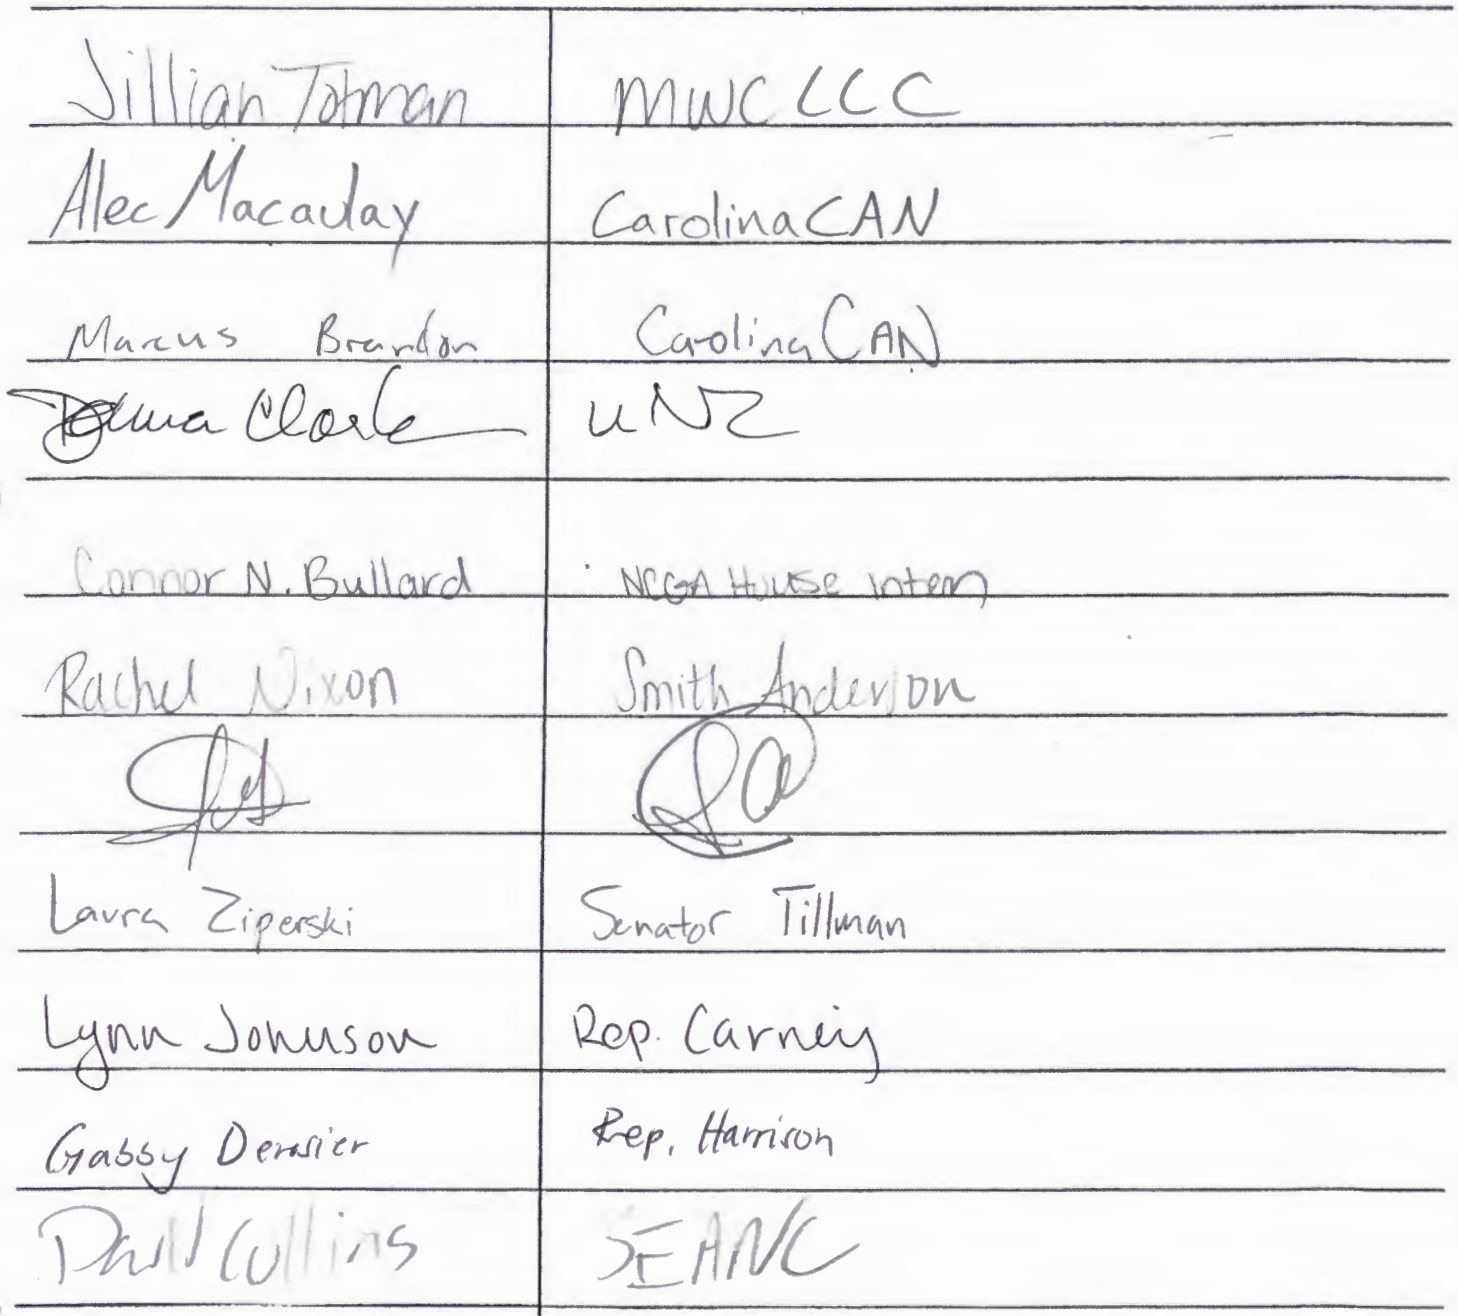 Jillian Totman MWC LLC
Alec Macaulay CarolinaCAN
Marcus Brandon CarolinaCAN
Clark
Connor N. Bullard NCGA House Intern
Rachel Nixon Smith Anderson
Laura Ziperski Senator Tillman
Lynn Johnson Rep. Carney
Gabby Rep. Harrison
David Collins SEANC